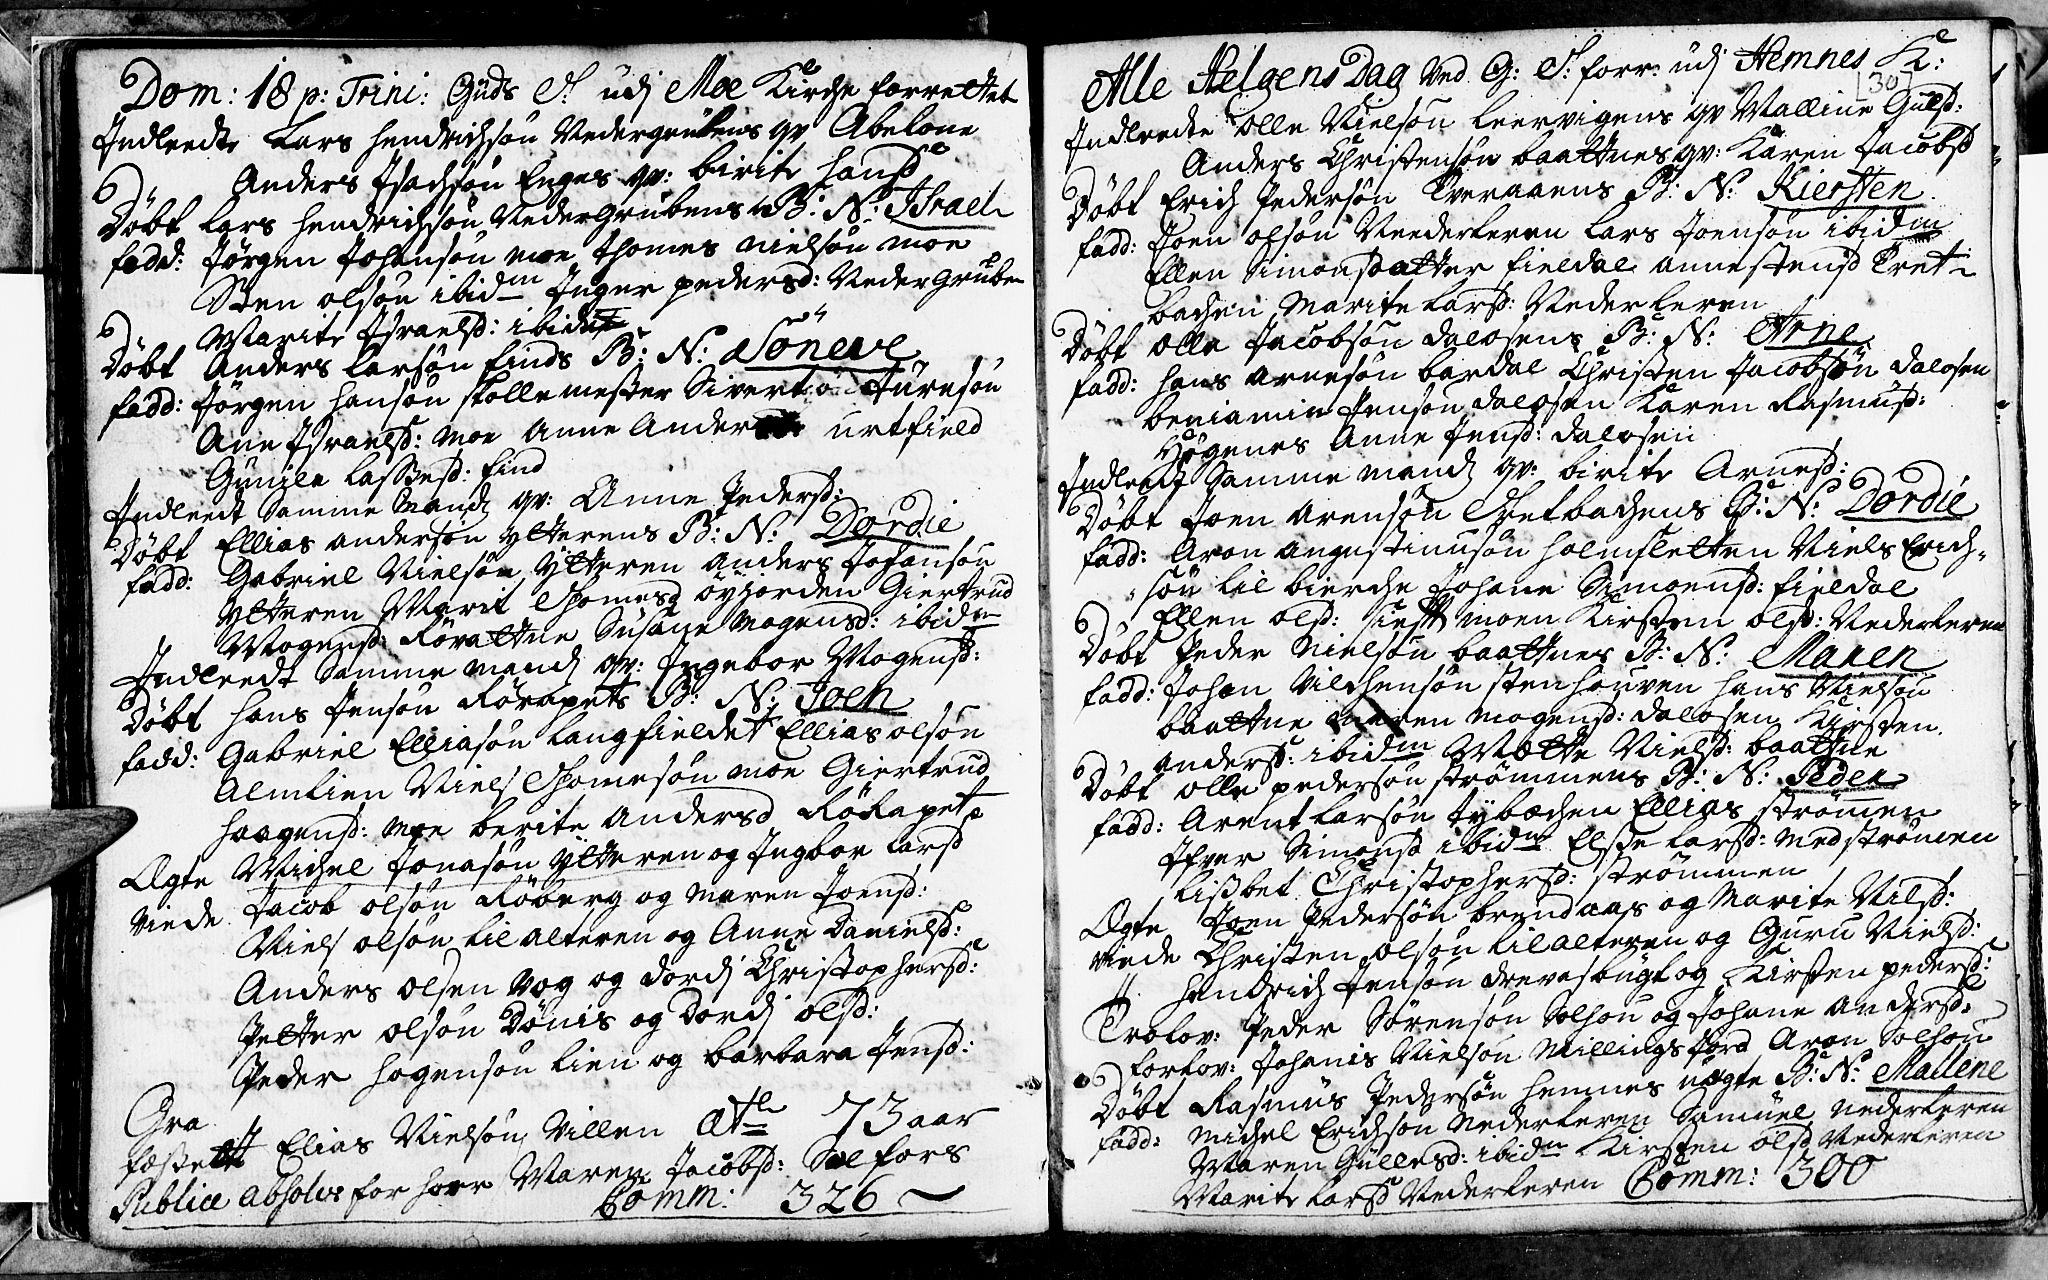 Dom: 18 p: Trini: Guds S: udj Moe Kirche forrettet
Indleedt Lars Hendrichsøn Nedergrubens qv Abelone
Anders Isachsøn Enges qv: birite Hansd
Døbt Lars Hendrichsøn Nedergrubens B: N: Israel
fadd: Jørgen Johansøn moe Thomes Nielsøn moe
Sten olsøn ibidm Inger pedersd: Nedergruben
Marit Israelsd: ibidm
Døbt Anders Larsøn finds B: N: Sönneve
fadd: Jørgen Hansøn skollemester Sivert Jürnsøn
Ane Israelsd: moe Anne Anders urtfield
Gunile Lassesd: find
Indleedt Samme Mands qv: Anne Pedersd:
Døbt Ellias andersøn ytterens B: N: Dordie
fadd: Gabriel Nielsøn Ytteren Anders Johansøn
Ytteren Marit Thomesd øyjorden Giertrud
Mogensd: Røvattne Susane Mogensd: ibidm
Indleedt Samme mands qv: Ingebor Mogensd:
Døbt Hans Jensøn Rørapets B: N: Joen
fadd: Gabriel Elliasøn Langfieldet Ellias olsøn
Almlien Niels Thomesøn moe Giertrud
Haagensd: moe berite Andersd Rørapet
Ægte Michel Jonasøn Ytteren og Ingbor Larsd
viede Jacob olsøn Røberg og maren Joensd:
Niels olsøn lil alteren og Anne Danielsd:
Anders olsen vog og dordj Christophersd:
Petter olsøn Dönis og Dordj olsd:
Peder Hogensøn lien og barbara Jensd:
Gra
fæstett Elias Nielsøn Villen Æt 73 aar
Publice absolv: for hoer Maren Jacobsd: Selfors
Comm: 326
Alle Helgens Dag ved G: S: forr: udj Hemnes K:
[30]
Indleedte Olle Nielsøn Leervigens qv Malline Gulsd:
Anders Christensøn baattnes qv: Karen Jacobsd
Døbt Erich Pedersøn Tveraaens B: N: Kiersten
fadd: Joen olsøn Nederleren Lars Joensøn ibidm
Ellen Simonsdatter fieldal anne stensd Tret
bachen Marite Larsd: Nederleren
Døbt Olle Jacobsøn dalosens B: N: Arne
fadd: Hans Arnesøn bardal Christen Jacobsøn dalosen
beniamin Jensøn dalosen Karen Rasmusd:
Høgenes Anne Jensd: dalosen
Indleedt Samme mands qv: birite Arnesd:
Døbt Joen Arensøn Tretbachens B: N: Dordie
fadd: Aron Angustinusøn Holmsletten Niels Erich-
søn lil bierche Johane Simonsd: fieldal
Ellen olsd: moen Kirsten olsd: Nederleren
Døbt Peder Nielsøn baattnes B: N: Maren
fadd: Johan Vilchensøn stenhouven Hans Nielsøn
baattne maren mogensd: dalosen Kirsten
andersd: ibidm Mætte Nielsd: baattne
Døbt olle pedersøn strömmens B: N: Peder
fadd: Arent Larsøn Lybæchen Ellias strömen
Iffver Simonsd ibidm Else Larsd: medströmen
Lisbet Christophersd: strömmen
Ægte Joen Pedersøn brendaas og Marite Nilsd:
viede Christen olsøn lilalteren og Guru Nielsd:
Hendrich Jensøn drevasbugt og Kirsten pedersd:
Trolov: Peder Sørensøn Solhou og Johane Andersd:
forlov: Johanis Nielsøn Millingsjord Aron Solhou
Døbt Rasmus Pedersøn Hemnes uægte B: N: Mallene
fadd: Michel Erichsøn Nederleren Samuel Nederleren
Maren Gullesd: ibidm Kirsten olsd Nederleren
Marite Larsd Nederleren Comm: 300